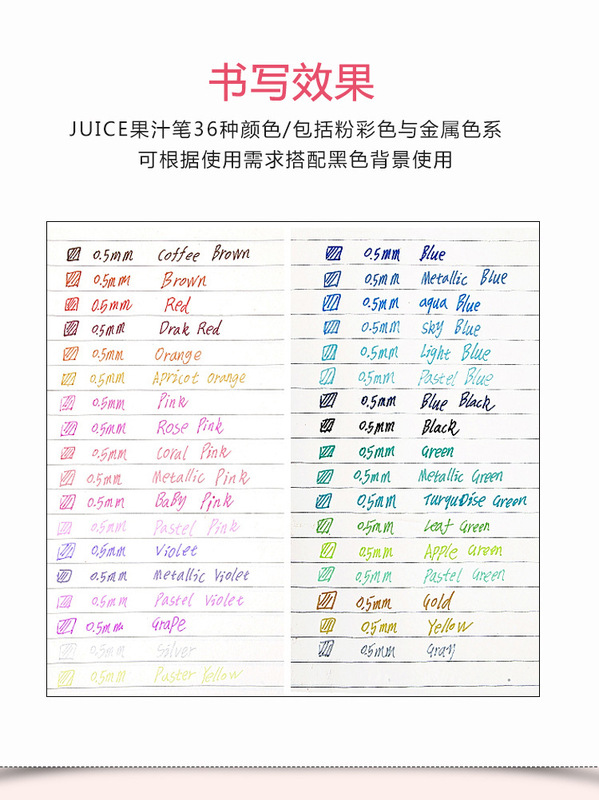 书写效果
JUICE果汁笔36种颜色/包括粉彩色与金属色系
可根据使用需求搭配黑色背景使用
0.5mm Coffee Brown
0.5mm Brown
0.5mm Red
0.5mm Drak Red
0.5mm Orange
0.5mm Apricot orange
0.5mm Pink
0.5mm Rose Pink
0.5mm Coral Pink
0.5mm Metallic Pink
0.5mm BaBy Pink
0.5mm Pastel Pink
0.5mm Violet
0.5mm Metallic Violet
0.5mm Pastel Violet
0.5mm Grape
0.5mm Silver
0.5mm Paster Yellow
0.5mm Blue
0.5mm Metallic Blue
0.5mm aqua Blue
0.5mm sky Blue
0.5mm Light Blue
0.5mm Pastel Blue
0.5mm Blue Black
0.5mm Black
0.5mm Green
0.5mm Metallic Green
0.5mm TurquDise Green
0.5mm Leaf Green
0.5mm Apple Green
0.5mm Pastel Green
0.5mm Gold
0.5mm Yellow
0.5mm Gray